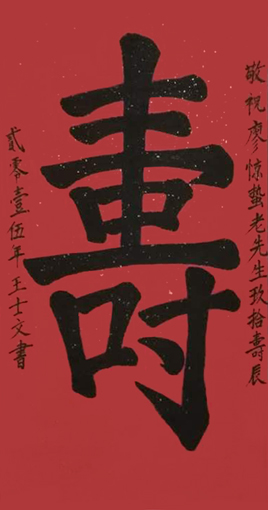 敬祝廖惊蛰老先生玖拾壽辰
壽
贰零壹伍年王士文書